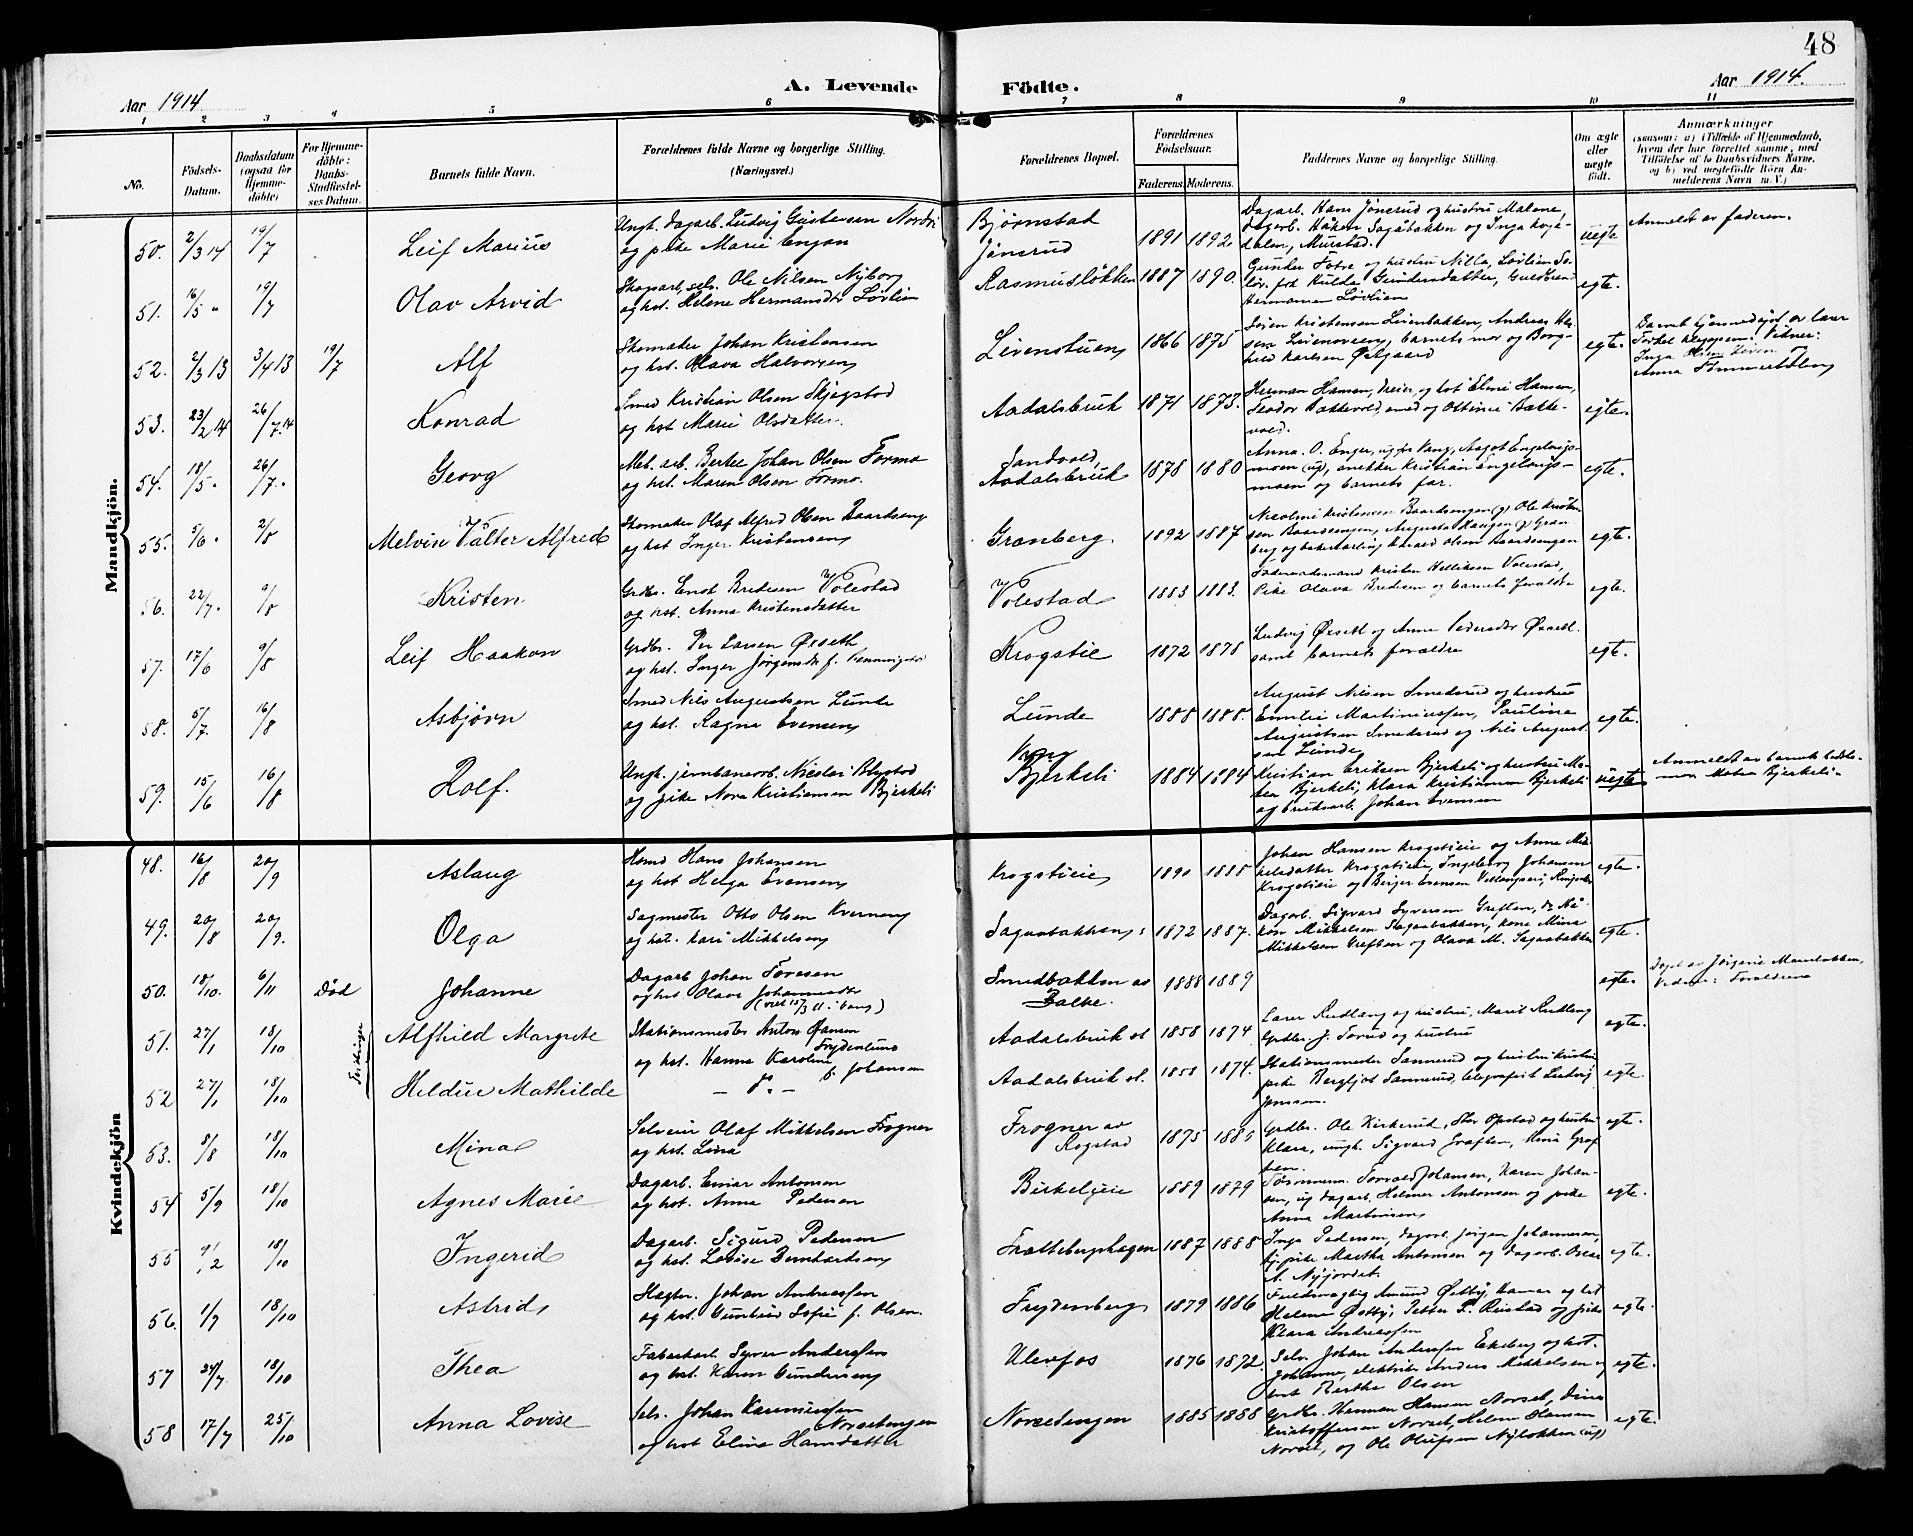 48
Aar 1914
A. Levende
Födte.
Aar 1914.
1 2 3 4 5 6 7 8 9 10 11
No.
Födsels-Datum.
Daabsdatum (ogsaa for Hjemme-döbte)
For Hjemme-döbte: Daabs-Stadfæstel-ses Datum.
Barnets fulde Navn.
Forældrenes fulde Navne og borgerlige Stilling. (Næringsvei.)
Forældrenes Bopæl.
Forældrenes Födselsaar.
Faderens. Moderens.
Faddernes Navne og borgerlige Stilling.
Om ægte eller uægte födt.
Anmærkninger
(saasom: a) i Tilfælde af Hjemmedaab,
hvem der har forrettet samme, med
Tilföielse af to Daabsvidners Navne,
og b) ved uægtefödte Börn An-
melderens Navn m. V.)
Mandkjön.
50. 2/3 14 19/7 Leif Marius
Ungk. dagarb. Ludvig Gustavsen Nordv
og pike Marie Engan
Bjørnstad
Jønsrud
1891 1892
Dagarb. Hans Jønsrud og hustru Malene,
dagarb. Håken Sagåbakken og Inga
dalen, Murstad.
uegte
Anmeldt av faderen.
51. 16/5 " 19/7 Olav Arvid
Skogsarb., selv. Ole Nilsen Nyborg
og hst. Helene Hermansdr Løvlien
Rasmusløkken 1887 1890.
Gunder Fotre og hustru Nilla, Løvlien
Hulda Gundersdatter,
Hermansen Løvlien
egte.
52. 2/3 13 3/4 13 19/7 Alf
Skomaker Johan Kristensen
og hst. Olava Halvorsen
Livenstuen 1866 1875
Kristensen Livenbakken, Andreas
sen Livenoreng, barnets mor og Borg-
hild Karlsen Østgaard
egte.
Barnet hjemmedøpt av lærer
Torkel Kleppen. Vidner:
Inga Olsen Liven
Anna
53. 23/2 14 26/7 14 Konrad
Smed Kristian Olsen Skjegstad
og hst Marie Olsdatter.
Aadalsbruk 1871 1873.
Herman Hansen, dreier, og hst Elmi Hansen,
Teodor Bakkevold, smed og Ottinie Bakke-
vold.
egte.
54. 18/5 " 26/7 " Georg
Mek. arb. Bertel Johan Olsen Formo
og hst. Maren Olsen Formo.
Sandvold,
Aadalsbruk
1878 1880
Anna O. Enger, ug fra Vang, Aagot Engelaugs-
moen (ug), snekker Kristian Engelaugs-
moen og barnets far.
egte.
55. 5/6 " 2/8 Melvin Valter Alfred
Skomaker Olaf Alfred Olsen Baardseng
og hst Inger Kristensen
Granberg 1892 1887
Nicoline Kristensen Baardsengen (g) Ole Kristen
sen Baardsengen, Augusta Haugen (g) Gran
berg og Harald Olsen Baardsengen
egte.
56. 22/7 " 9/8 Kristen
Grdbr. Enst Bredesen Volestad
og hst. Anna Kristensdatter
Volestad 1883 1883.
Føderaadsmand Kristen Helliksen Volestad,
Pike Olava Bredesen og barnets foreldre
egte.
57. 17/6 9/8 Leif Haakon
Grdbr. Per Larsen Øxseth
og hst. Inger Jørgensdr f. Henningstad
Krogstie 1872 1878
Ludvig Øxseth og Anne Pedersdr Øxseth
samt barnets forældre
egte.
58. 5/7. 16/8 Asbjørn
Smed Nils Augustsen Lunde
og hst. Ragna Evensen
Lunde 1888 1888.
August Nilsen Smedsrud og hustru
Emilie Martiniussen, Pauline
Augustsen Smedsrud og Nils August
sen Lunde
egte.
59. 15/6 16/8 Rolf.
Ungk. jernbanearb. Nicolai Blystad
og pike Nora Kristiansen Bjerkeli
Vang
Bjerkeli
1884 1884
Kristian Eriksen Bjerkeli og hustru
Bjerkeli, Klara Kristiansen Bjerkeli
og bruksarb. Johan Evensen
uegte
Anmeldt av barnets bedste-
mor Bjerkeli.
Kvindekjön
48. 16/8 20/9 Aslaug
Hsmd Hans Johansen
og hst Helga Evensen
Krogstieie 1890 1888
Johan Hansen Krogstieie og Anne Mik-
kelsdatter Krogstieie, Ingeborg Johansen
Krogstieie og Birger Evensen
egte.
49. 20/8 20/9. Olga
Sagmester Otto Olsen Kverneng
og hst. Kari Mikkelsen
Sagaabakken 1872 1887.
Dagarb. Sigvard Syversen Greften, do Hå-
kon Mikkelsen Sagaabakken, kone Mina
Mikkelsen Greften og Olava M. Sagaabakken
egte.
50. 18/10. 6/11 Död Johanne
Dagarb. Johan Toresen
og hst. Olava Johannesdr
(viet 15/3 11 i Vang)
Smedbakken av
Balke.
1888 1889
egte.
Døpt av Jørgine
Vidner: Foreldrene
51. 27/1 18/10 Alfhild Margrete
Stationsmester Anton Hansen
Frydenlund
og hst. Hanna Karoline
f. Johansen
Aadalsbruk st 1858 1874
Lars Rudlang og hustru, Marit Rudlang
Grdbr. J. Torud og hustru
egte.
Tvillinger
52 27/1 18/10 Heldur Mathilde
— d°. —
Aadalsbruk st. 1858 1874.
Stationsmester Sannerud og hustru
pike Bergljot Sannerud, telegrafist Ludvig
Jonssen.
egte
53. 8/8 18/10 Mina
Selveier Olaf Mikkelsen Frogner
og hst. Lina
Frogner av
Rogstad
1875 1885
Grdbr. Ole Kirkerud, Stor Opstad og hustru
Klara, ungk. Sigvard Graften, Mina Graf
ten.
egte.
54 5/9 18/10 Agnes Marie
Dagarb. Einar Antonsen
og hst. Anna Pedersen
Birkelyeie 1889 1879
Torvald Johansen, Karen Johan-
sen, ug dagarb. Helmer Antonsen og pike
Anna Martinsen
egte.
55 9/2 18/10 Ingerid
Dagarb. Sigurd Pedersen
og hst. Lovise Bernhardsen
Frættebergshagen 1887 1888
Inga Pedersen, dagarb. Jørgen Johannesen,
tj. pike Martha Antonsen og dagarb. Oscar
A. Nyjordet.
egte.
56. 1/7 18/10 Astrid
Johan Andreassen
og hst. Gunhild Sofie f. Olsen.
Frydenberg 1879 1886
Amund Østby,
Helene Østby, Petter P. Reistad og pike
Klara Andreassen
egte.
57 24/7 18/10 Thea
Fabrikarb. Syver Anderssen
og hst. Karen Gundersen
Ulevfos 1876 1872.
Selv. Johan Anderssen Ekeberg og hst.
Johanne, elektriker Anders Mikkelsen og
hst Berthe Olsen
egte.
58 17/7 25/10 Anna Lovise
Selv. Johan Rasmussen
Norsetengen
og hst Eline Hansdatter
Norsetengen 1885 1888
Grdbr. Herman Hansen Norset, Dina
Kristoffersen Norset, Helene Hansen
Norset, og Ole Olufsen Nyløkken (ug)
egte.